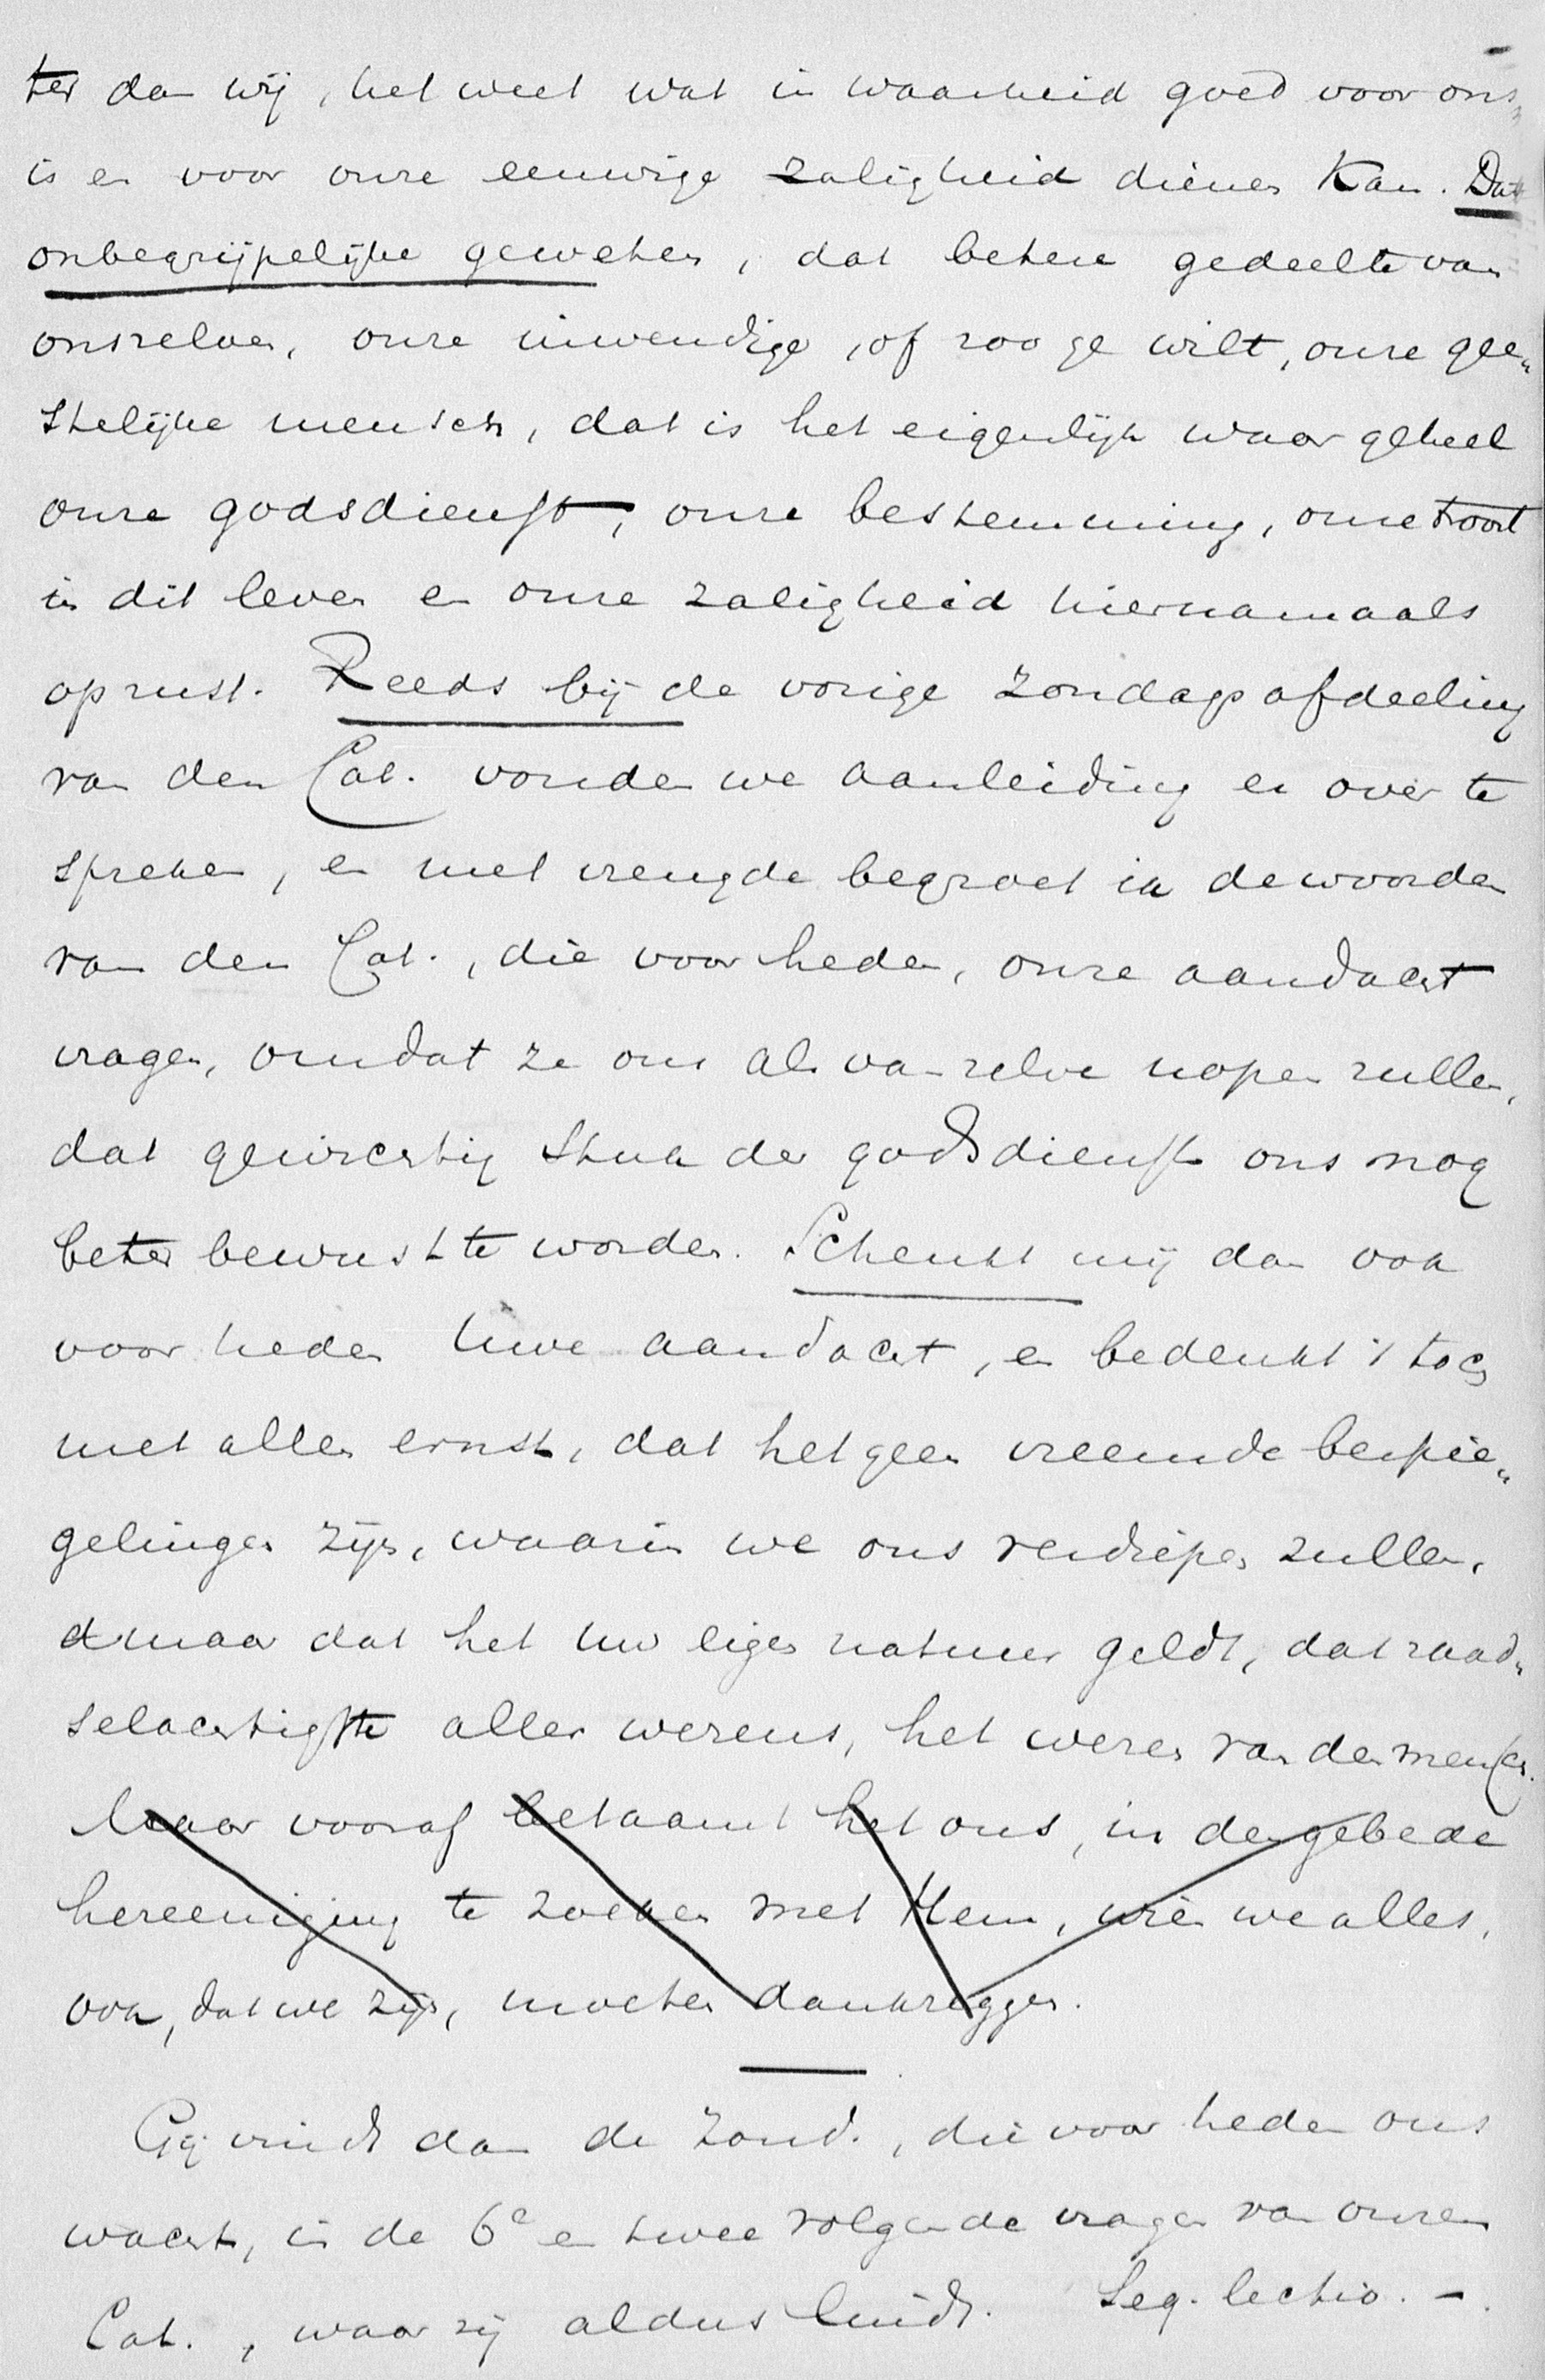 ter dan wij, het weet wat in waarheid goed voor ons
is en voor onze eeuwige zaligheid dienen kan. Dat
onbegrijpelijke geweten, dat betere gedeelte van
onszelven, onze inwendige, of zoo ge wilt, onze gee„
stelijke mensch, dat is het eigenlijk waar geheel
onze godsdienst, onze bestemming, onze troost
in dit leven en onze zaligheid hiernamaals
op rust. Reeds bij de vorige Zondagsafdeeling
van den Cat. vonden we aanleiding er over te
spreken, en met vreugde begroet ik de woorden
van den Cat., die voor heden, onze aandacht
vragen, omdat ze ons als van zelve nopen zullen,
dat gewichtig stuk der godsdienst ons nog
beter bewust te worden. Schenkt mij dan ook
voor heden Uwe aandacht, en bedenkt 't toch
met allen ernst, dat het geen vreemde bespie„
gelingen zijn, waarin we ons verdiepen zullen,
maar dat het uw eigen natuur geldt, dat raad„
selachtigste aller wezens, het wezen van den mensch.
Maar vooraf betaamt het ons, in den gebede
hereeniging te zoeken met Hem, wien we alles,
ook, dat we zijn, moeten dankzeggen.
Gij vindt dan de Zond., die voor heden ons
wacht, in de 6e en twee volgende vragen van onzen
Cat., waar zij aldus luidt. Seq. lectio. –